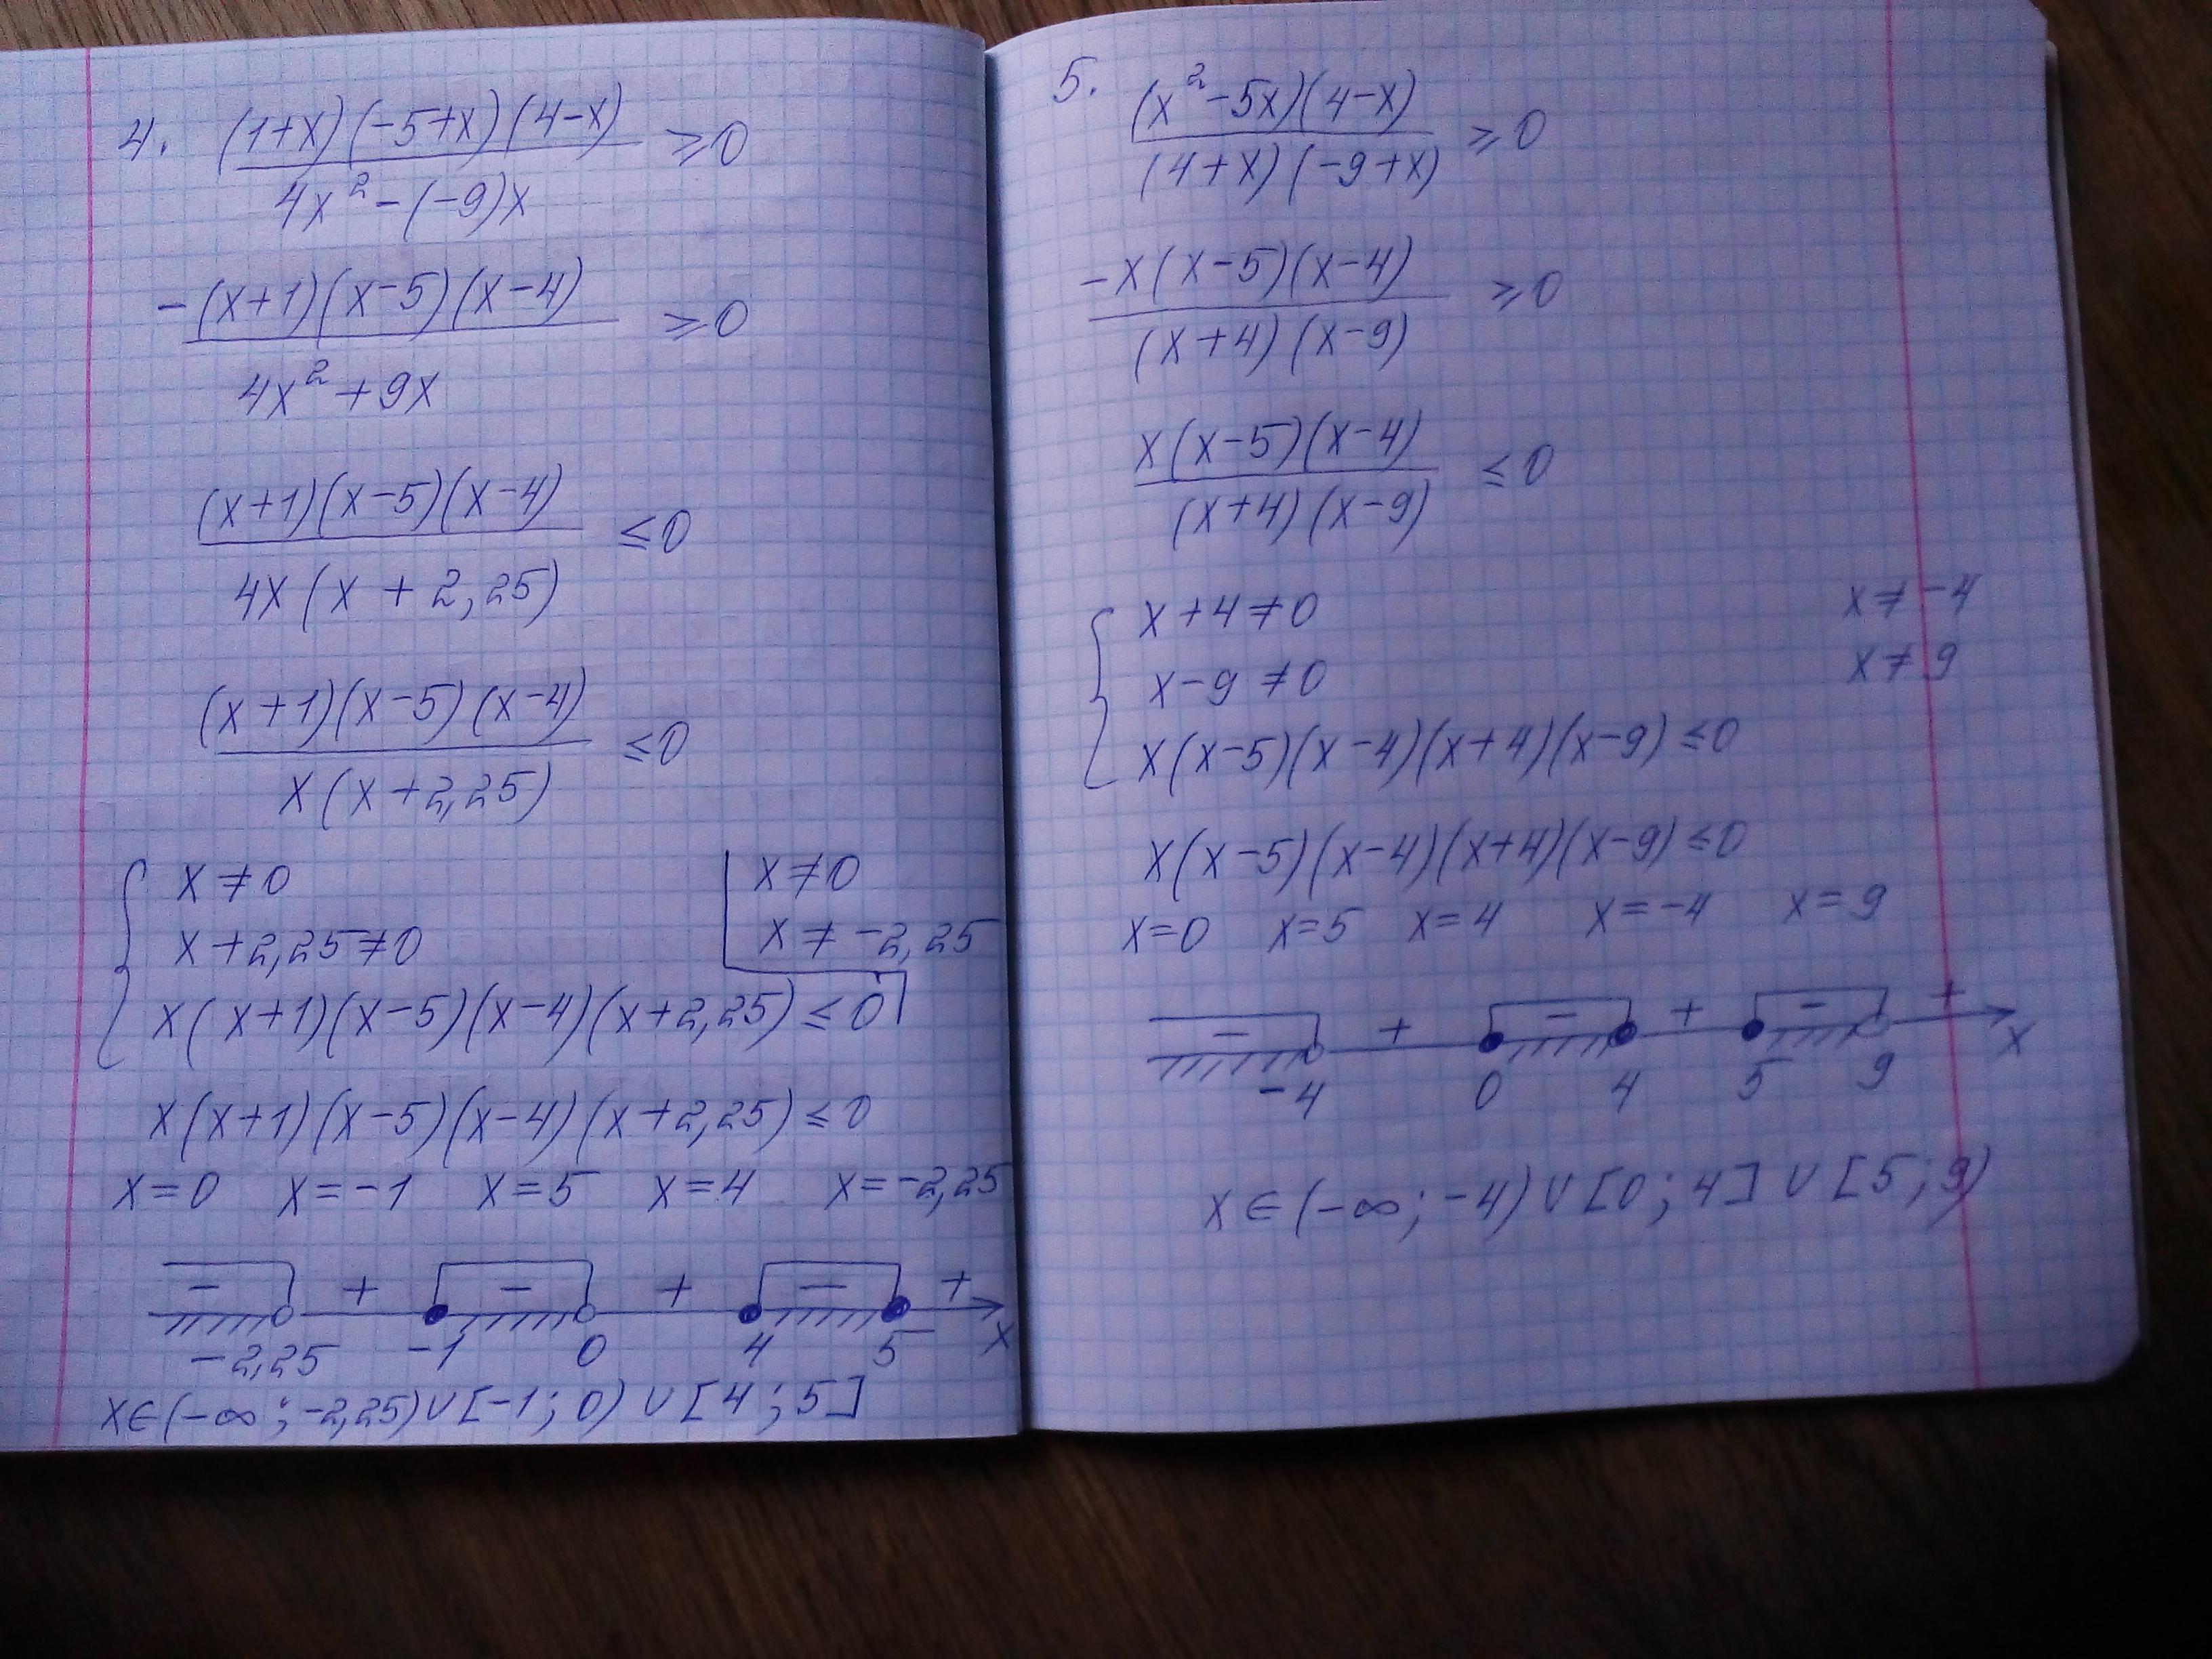 4. (1+x)(-5+x)(4-x) ≥0
4x²-(-9)x
-(x+1)(x-5)(x-4) ≥0
4x²+9x
(x+1)(x-5)(x-4) ≤0
4x(x+2,25)
(x+1)(x-5)(x-4) ≤0
x(x+2,25)
{ x≠0
x+2,25≠0
x(x+1)(x-5)(x-4)(x+2,25)≤0
x≠0
x≠-2,25
x(x+1)(x-5)(x-4)(x+2,25)≤0
x=0 x=-1 x=5 x=4 x=-2,25
- + - + - +
-2,25 -1 0 4 5 x
x∈(-∞;-2,25)∪[-1;0)∪[4;5]
5. (x²-5x)(4-x) ≥0
(4+x)(-9+x)
-x(x-5)(x-4) ≥0
(x+4)(x-9)
x(x-5)(x-4) ≤0
(x+4)(x-9)
{ x+4≠0 x≠-4
x-9≠0 x≠9
x(x-5)(x-4)(x+4)(x-9)≤0
x(x-5)(x-4)(x+4)(x-9)≤0
x=0 x=5 x=4 x=-4 x=9
- + - + - +
-4 0 4 5 9 x
x∈(-∞;-4)∪[0;4]∪[5;9)